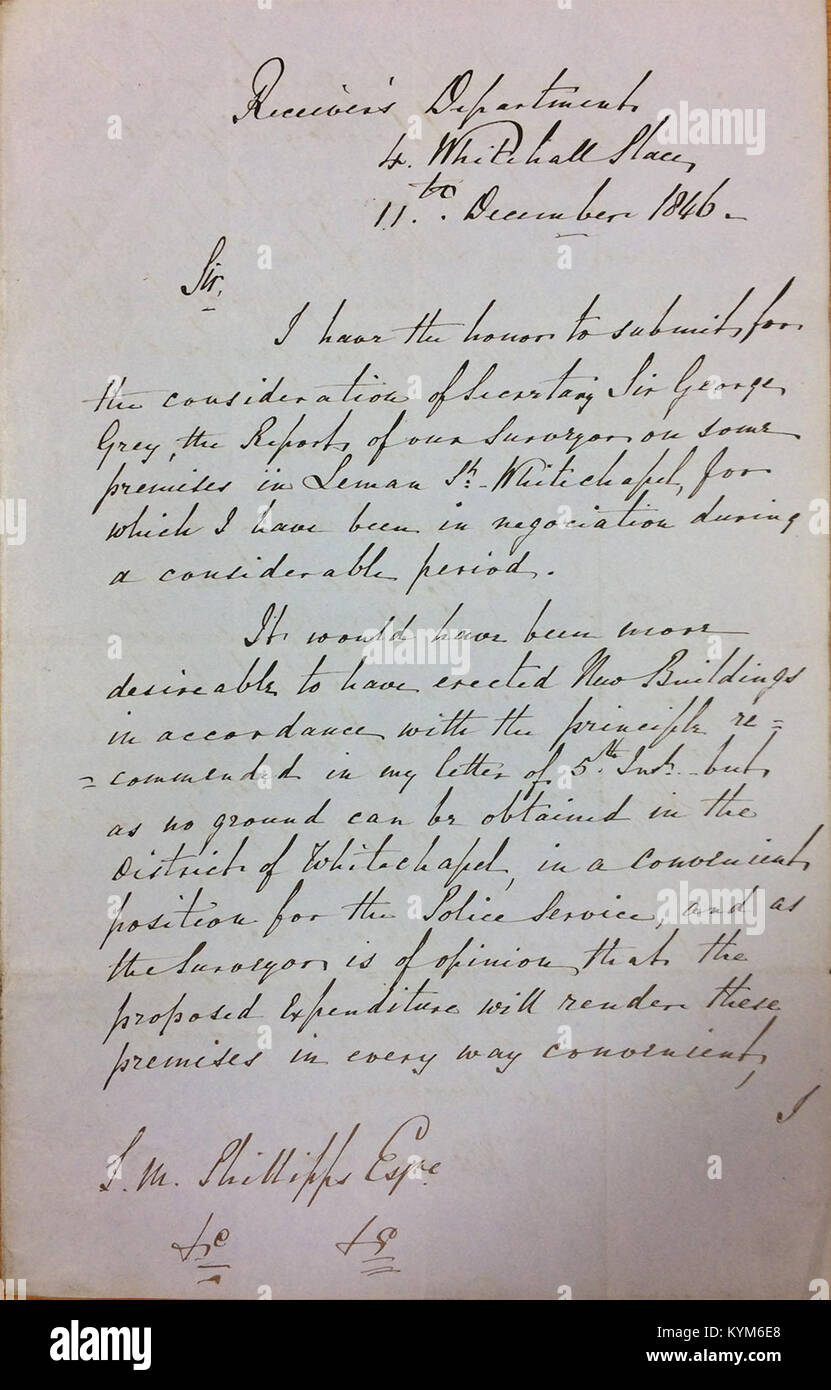 Receiver's Department
4. Whitehall Place,
11.th December 1846.
Sir,
I have the honor to submit for
the consideration of Secretary Sir George
Grey, the Report of our Surveyor on some
premises in Leman St. Whitechapel, for
which I have been in negociation during
a considerable period.
It would have been more
desireable to have erected New Buildings
in accordance with the principle re=
=commended in my letter of 5th Inst. but
as no ground can be obtained in the
District of Whitechapel, in a convenient
position for the Police Service, and as
the Surveyor is of opinion that the
proposed Expenditure will render these
premises in every way convenient,
I
S. M. Phillipps Esqre.
&c &c
alamy
Image ID: KYM6E8
www.alamy.com